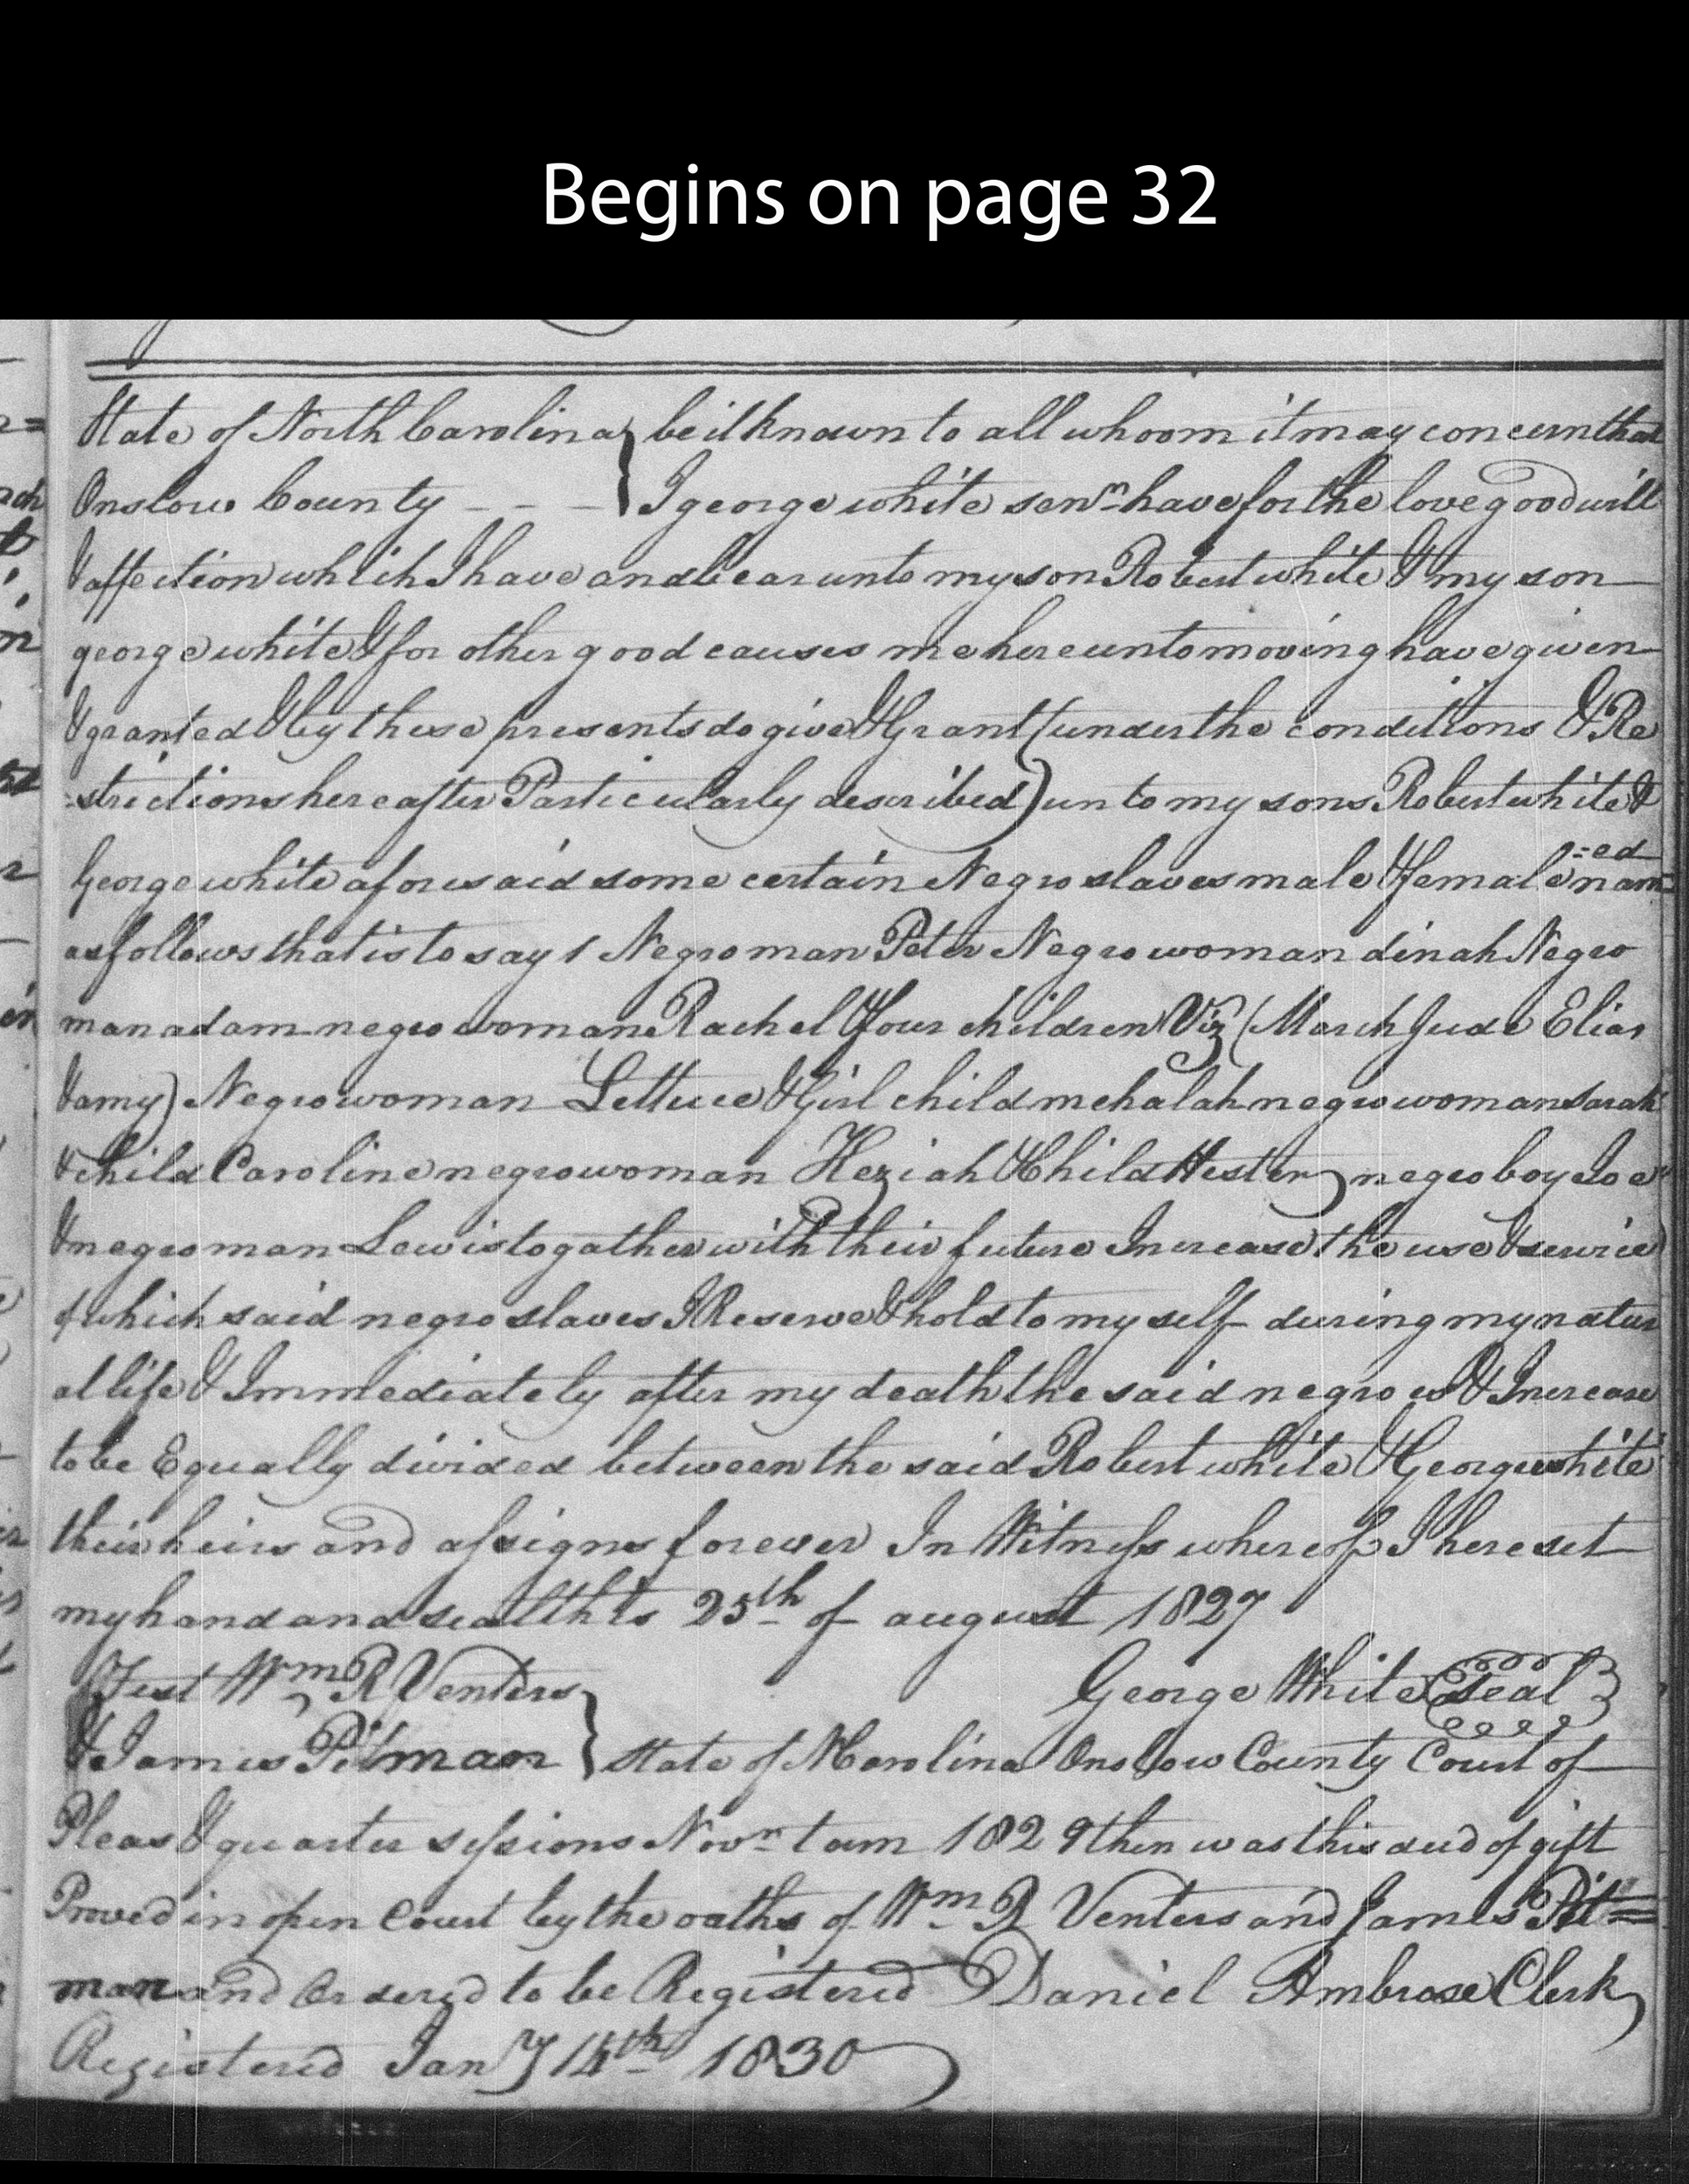 Begins on page 32
State of North Carolina } be it known to all whoom it may concern that
Onslow County - - - } I george white senr have for the love good will
& affection which I have and bear unto my son Robert white & my son
george white & for other good causes me hereunto moving have given
& granted & by these presents do give & Grant (under the conditions & Re
=strictions hereafter Particularly described) unto my sons Robert white &
George white aforesaid some certain Negro slaves male & female nam=
=ed
as follows that is to say 1 Negro man Peter Negro woman dinah Negro
man adam negro woman Rachel & four children Viz (March Jude Elias
& amy) Negro woman Lettuce & Girl child mehalah negro woman Sarah
& child Caroline negro woman Keziah & Child Hester negro boy Joe
& negro man Lewis togather with their future Increase the use & service
of which said negro slaves I Reserve & hold to my self during my natur
al life & Immediately after my death the said negroes & Increase
to be Equally divided between the said Robert white & George white
their heirs and assigns forever In Witness whereof I here set
my hand and seal this 25th of august 1827
Test Wm R Venters } George White Seal
& James Pitman } State of N Carolina Onslow County Court of
Pleas & quarter sessions Novr tam 1829 then was this deed of gift
Proved in open Court by the oaths of Wm R Venters and James Pit=
man and Ordered to be Registered Daniel Ambrose Clerk
Registered Jany 14th 1830